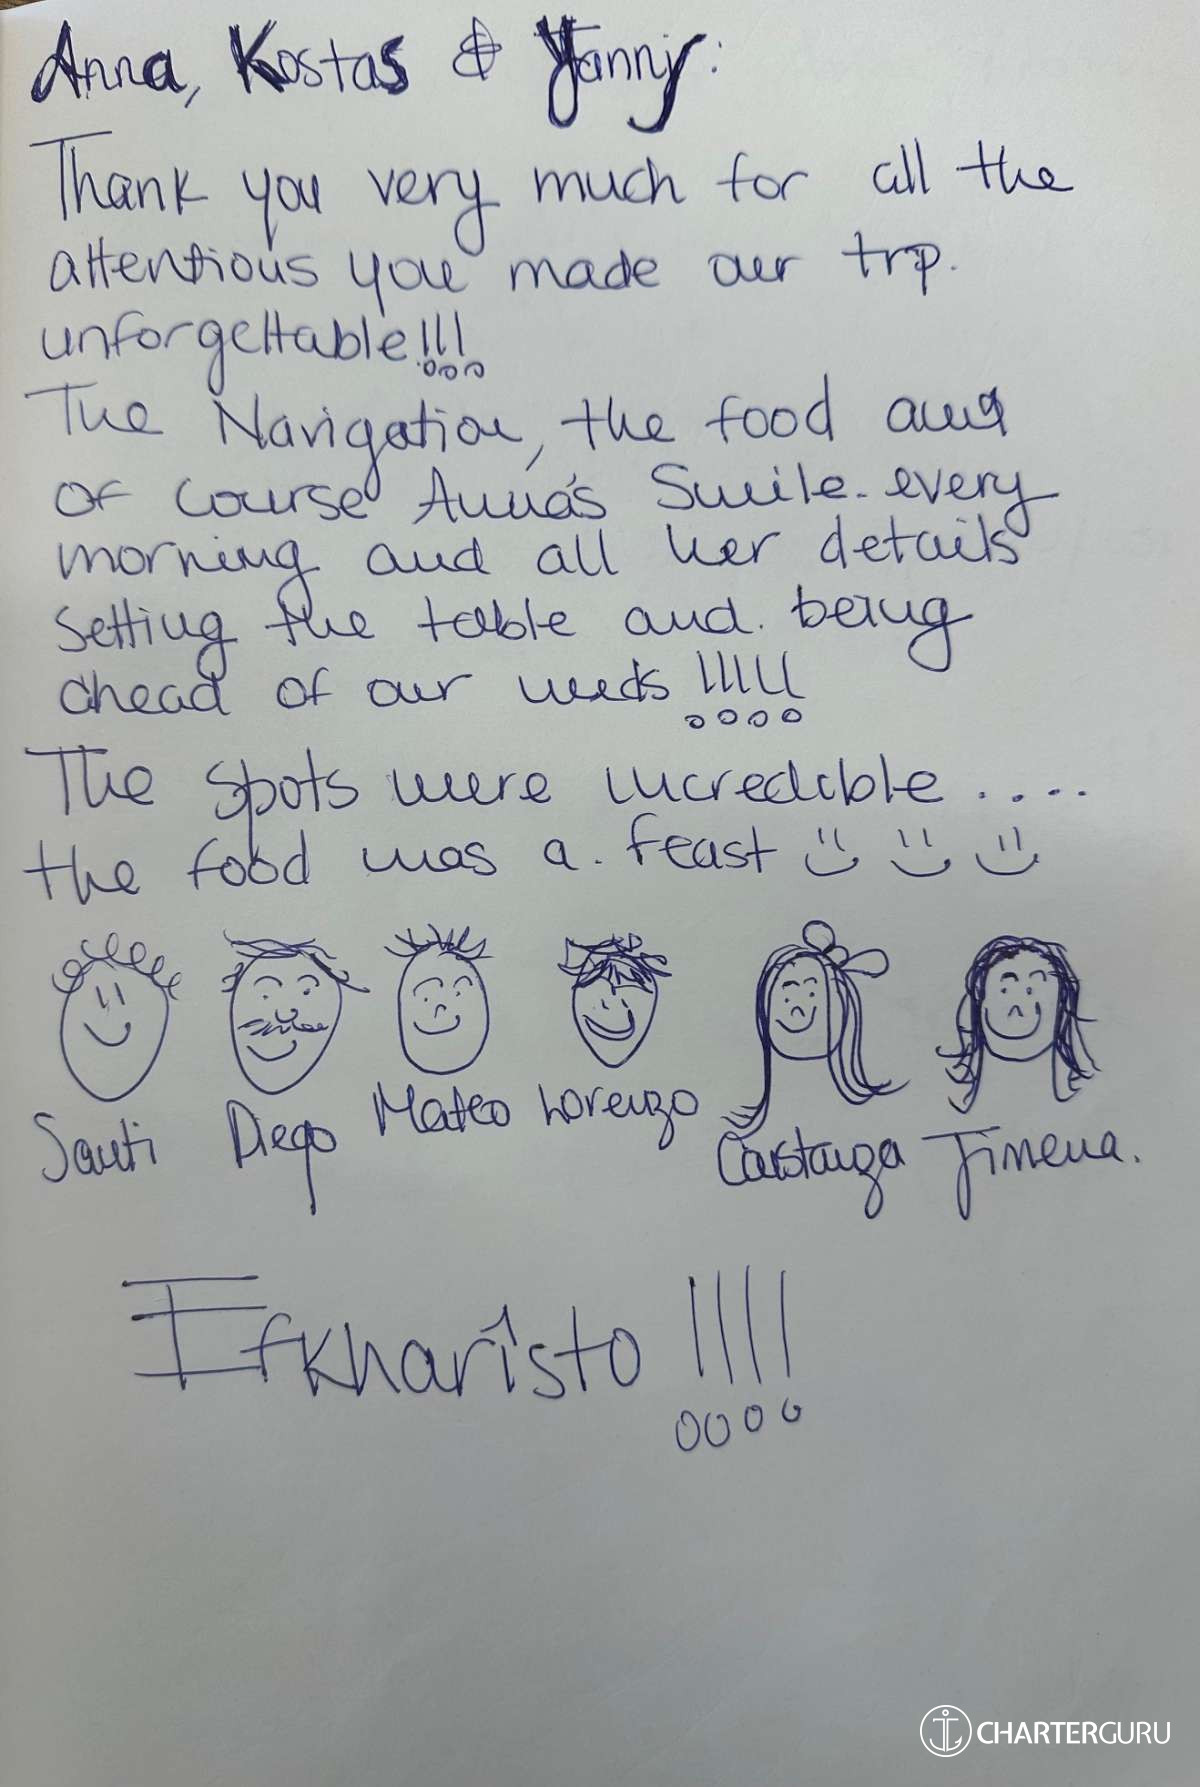 Anna, Kostas & Yanny:
Thank you very much for all the
attentious you made our trip.
unforgettable!!!
The Navigation, the food and
of course Anna's Smile. every
morning and all her details
setting the table and. being
ahead of our needs !!!!!
The spots were incredible ....
the food was a. feast
Santi Diego Mateo Lorenzo
Constanza Jimena.
Efkharisto !!!!
CHARTERGURU